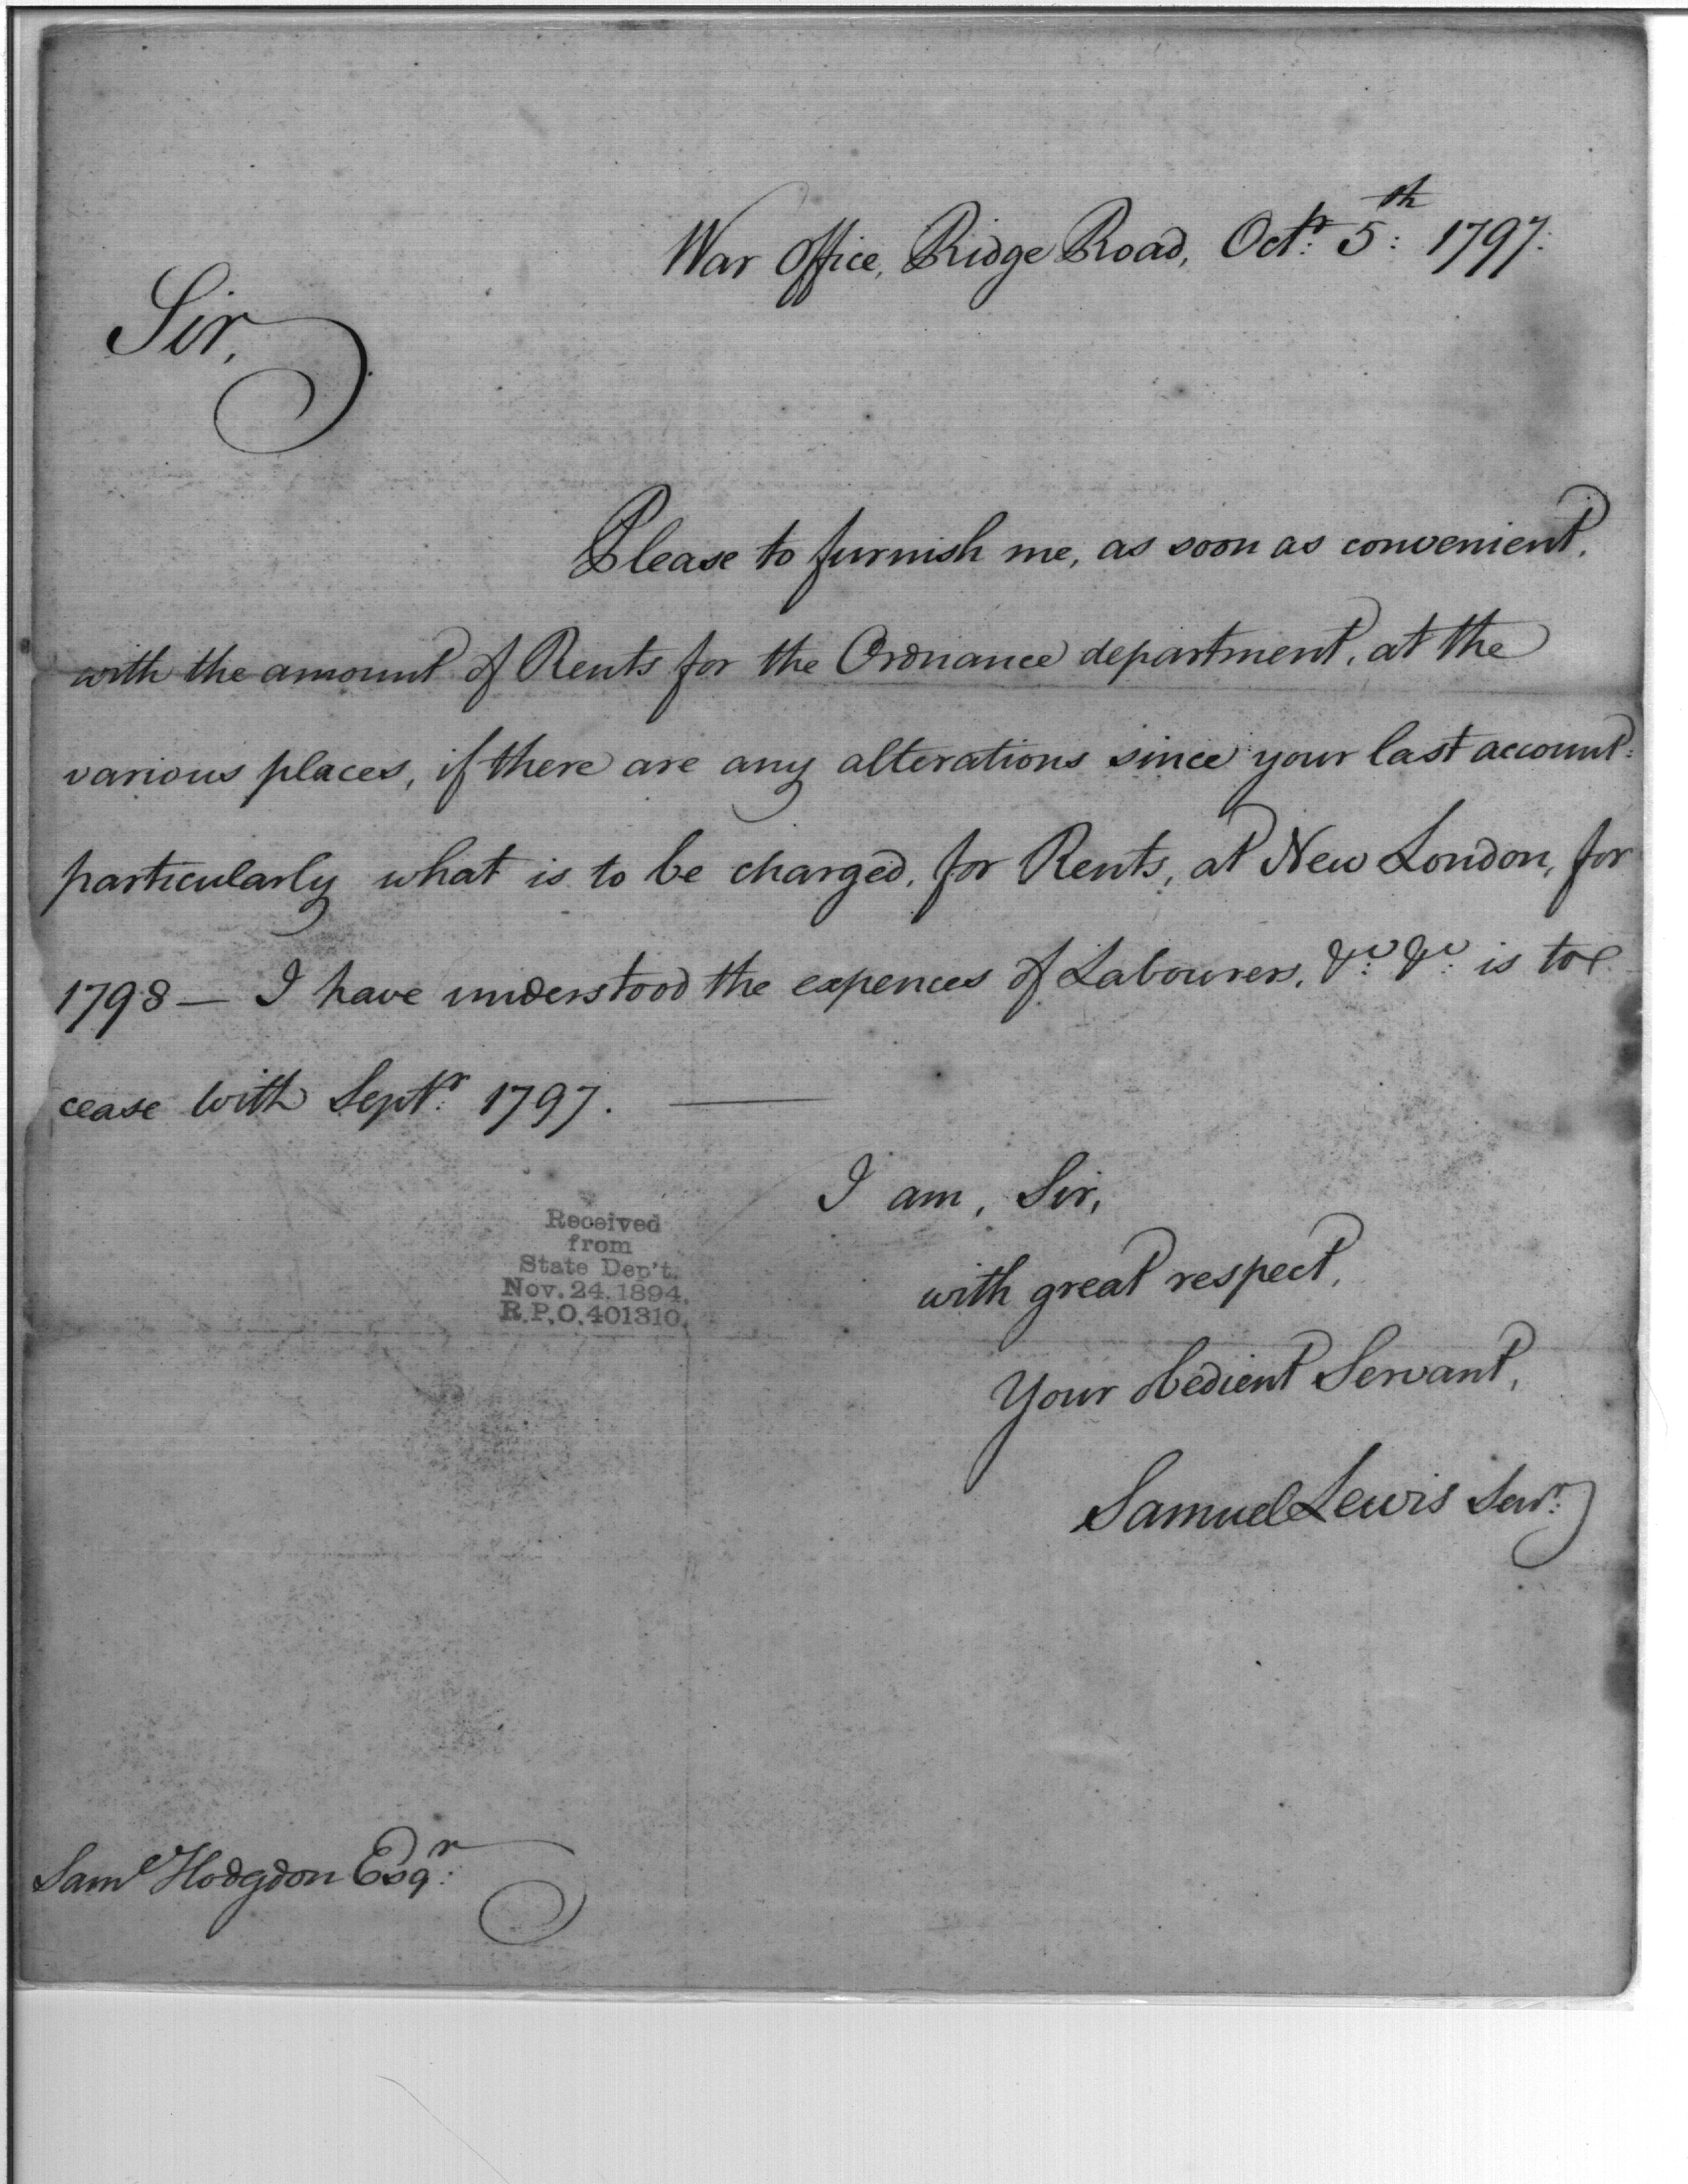 War Office, Ridge Road, Octr: 5th: 1797.
Sir,
Please to furnish me, as soon as convenient,
with the amount of Rents for the Ordnance department, at the
various places, if there are any alterations since your last account:
particularly what is to be charged, for Rents, at New London, for
1798 — I have understood the expences of Labourers, &c: &c: is to
cease with Septr: 1797. —
I am, Sir,
with great respect,
Your obedient Servant,
Samuel Lewis Senr:
Received
from
State Dep't.
Nov. 24. 1894.
R.P.O. 401310.
Saml Hodgdon Esqr: